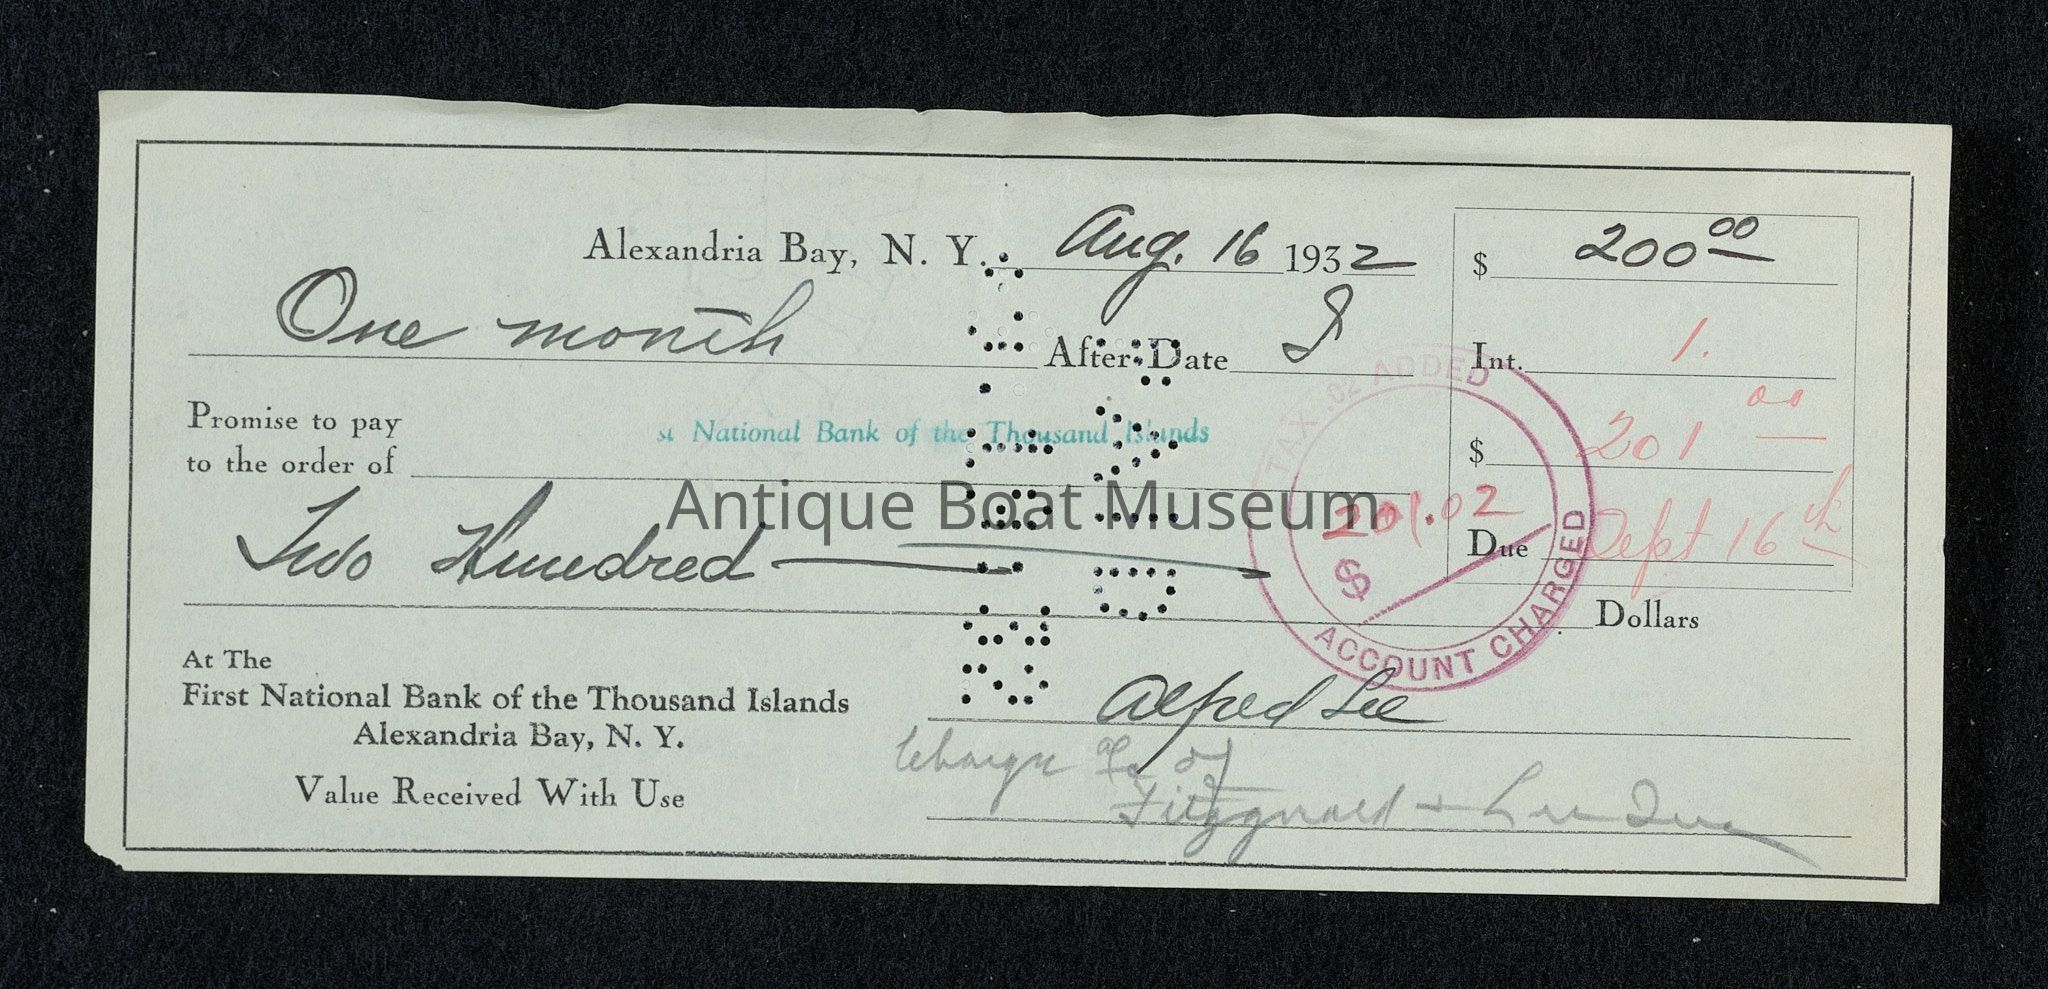 Alexandria Bay, N. Y. Aug. 16 1932 $ 200 00
One month After Date I Int. 1.
TAX .02 ADDED
Promise to pay
to the order of st National Bank of the Thousand Islands $ 201 00
Antique Boat Museum
201.02
Due Sept 16 th
Two Hundred Dollars
ACCOUNT CHARGED
At The
First National Bank of the Thousand Islands
Alexandria Bay, N. Y.
Value Received With Use
Alfred Lee
Charge a/c of
Fitzgerald + Lee Inc